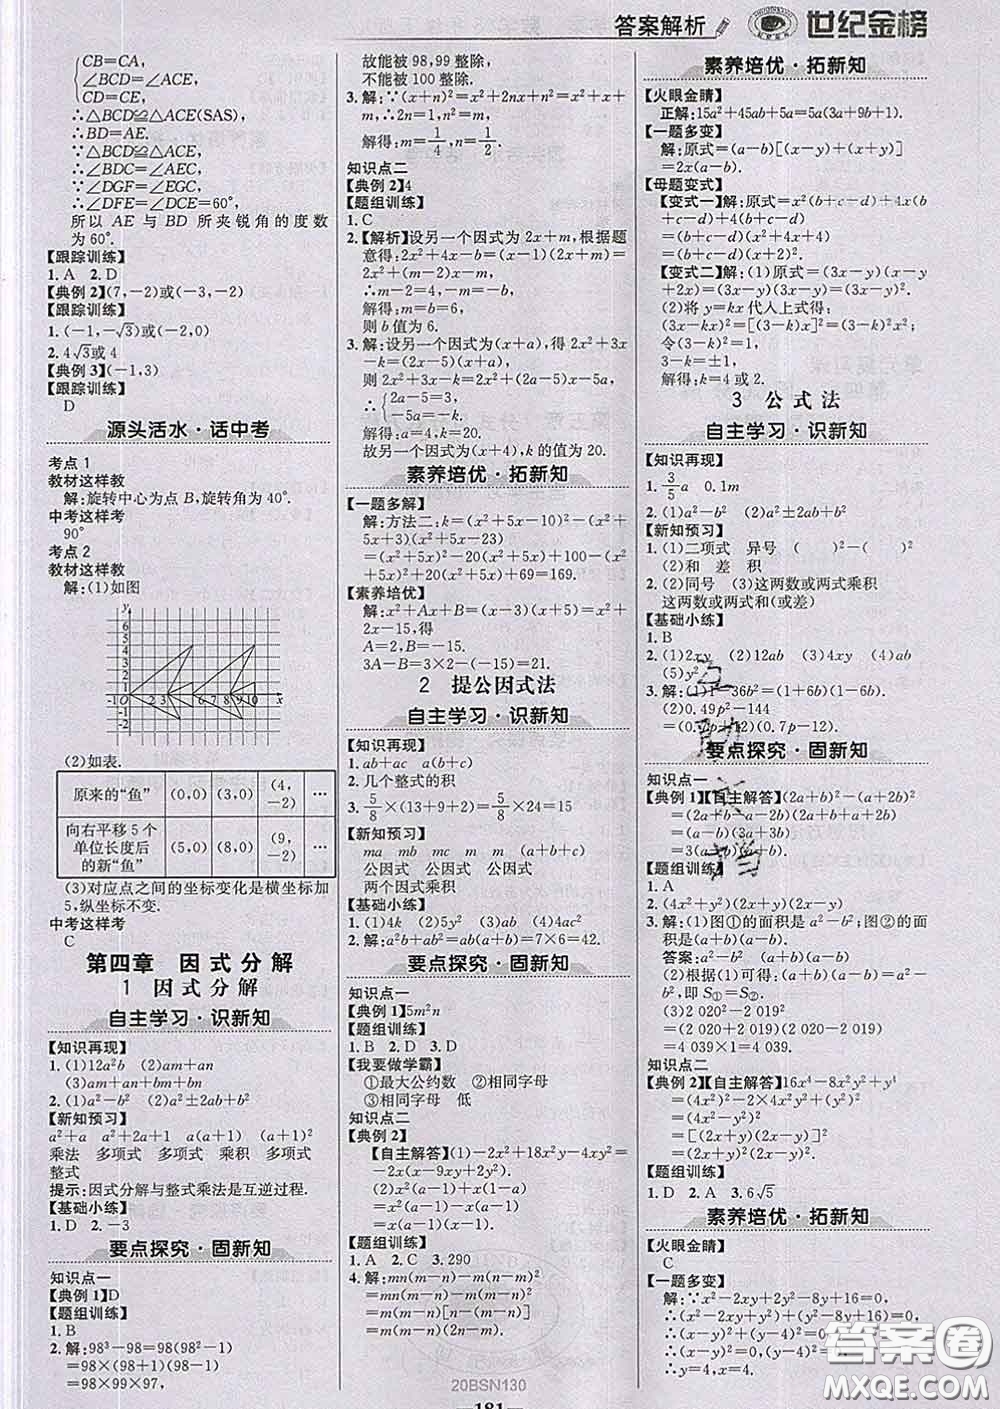 答案解析
世纪金榜
CB=CA,
∠BCD=∠ACE,
CD=CE,
∴△BCD≌△ACE(SAS),
∴BD=AE.
∵△BCD≌△ACE,
∴∠BDC=∠AEC,
∵∠DGF=∠EGC,
∴∠DFE=∠DCE=60°,
所以 AE 与 BD 所夹锐角的度数
为 60°.
【跟踪训练】
1. A 2. D
【典例 2】(7,-2)或(-3,-2)
【跟踪训练】
1. (-1,-√3)或(-2,0)
2. 4√3或 4
【典例 3】(-1,3)
【跟踪训练】
D
源头活水·话中考
考点 1
教材这样教
解:旋转中心为点 B,旋转角为 40°.
中考这样考
90°
考点 2
教材这样教
解:(1)如图
(2)如表.
原来的“鱼” (0,0) (3,0) (4,-2) …
向右平移 5 个单位长度后的新“鱼” (5,0) (8,0) (9,-2) …
(3)对应点之间的坐标变化是横坐标加
5,纵坐标不变.
中考这样考
C
第四章 因式分解
1 因式分解
自主学习·识新知
【知识再现】
1. (1)12a²b (2)am+an
(3)am+an+bm+bn
2. (1)a²-b² (2)a²±2ab+b²
【新知预习】
a²+a a²+2a+1 a(a+1) (a+1)²
乘法 多项式 多项式 乘积 多项式
整式
提示:因式分解与整式乘法是互逆过程.
【基础小练】
1. D 2. -3
要点探究·固新知
知识点一
【典例 1】D
【题组训练】
1. B
2. 解:98³-98=98(98²-1)
=98×(98+1)(98-1)
=98×99×97,
故能被 98,99 整除,
不能被 100 整除.
3. 解:∵(x+n)²=x²+2nx+n²=x²+x+
m,∴2n=1,n²=m,
解得:m=1/4,n=1/2.
知识点二
【典例 2】4
【题组训练】
1. C
2. 【解析】设另一个因式为 2x+m,根据题
意得:2x²+4x-b=(x-1)(2x+m)=
2x²+(m-2)x-m,
∴m-2=4,-b=-m,
解得:b=m=6,
则 b 值为 6.
3. 解:设另一个因式为(x+a),得 2x²+3x
-k=(2x-5)(x+a),
则 2x²+3x-k=2x²+(2a-5)x-5a,
∴2a-5=3,
-5a=-k.
解得:a=4,k=20.
故另一个因式为(x+4),k 的值为 20.
素养培优·拓新知
【一题多解】
解:方法二:k=(x²+5x-10)²-(x²+
5x+3)(x²+5x-23)
=(x²+5x)²-20(x²+5x)+100-(x²+
5x)²+20(x²+5x)+69=169.
【素养培优】
解:x²+Ax+B=(x-3)(x+5)=x²+
2x-15,得
A=2,B=-15.
3A-B=3×2-(-15)=21.
2 提公因式法
自主学习·识新知
【知识再现】
1. ab+ac a(b+c)
2. 几个整式的积
3. 5/8×(13+9+2)=5/8×24=15
【新知预习】
ma mb mc m m (a+b+c)
公因式 公因式 公因式
两个因式乘积
【基础小练】
1. (1)4k (2)5y² (3)ab (4)4ac²
2. 解:a²b+ab²=ab(a+b)=7×6=42.
要点探究·固新知
知识点一
【典例 1】5m²n
【题组训练】
1. B 2. D 3. D
【我要做学霸】
①最大公约数 ②相同字母
③相同字母 低
知识点二
【典例 2】
【自主解答】(1)-2x²+18x²y-4xy²=
-2x(x-9xy+2y²).
(2)x²(a-1)+x(1-a)
=x²(a-1)-x(a-1)
=x(a-1)(x-1).
【题组训练】
1. A 2. C 3. 290
4. 解:mn(m-n)-m(n-m)²
=mn(m-n)-m(m-n)²
=m(m-n)[n-(m-n)]
=m(m-n)(2n-m).
素养培优·拓新知
【火眼金睛】
正解:15a²+45ab+5a=5a(3a+9b+1).
【一题多变】
解:原式=(a-b)[(x-y)+(x+y)]
=2x(a-b).
【母题变式】
【变式一】解:原式=x²(b+c-d)+4x(
b+c-d)+4(b+c-d)
=(b+c-d)(x²+4x+4)
=(b+c-d)(x+2)².
【变式二】解:(1)原式=(3x-y)(x-y
+2x)=(3x-y)(3x-y)=(3x-y)².
(2)将 y=kx 代入上式得:
(3x-kx)²=[(3-k)x]²=(3-k)²x²;
令(3-k)²=1,
3-k=±1,
解得:k=4 或 2.
3 公式法
自主学习·识新知
【知识再现】
1. 3/5a 0.1m
2. (1)a²-b² (2)a²±2ab+b²
【新知预习】
1. (1)二项式 异号 ( )²-( )²
(2)和 差 积
2. (2)同号 (3)这两数或两式乘积
这两数或两式和(或差)
【基础小练】
1. B
2. (1)2xy (2)12ab (3)4xy (4)ab
(5)y²
3. 解:(1)1-36b²=(1+6b)(1-6b).
(2)0.49p²-144
=(0.7p+12)(0.7p-12).
要点探究·固新知
知识点一
【典例 1】【自主解答】(2a+b)²-(a+2b)²
=(2a+b-a-2b)(2a+b+a+2b)
=(a-b)(3a+3b)
=3(a-b)(a+b).
【题组训练】
1. A
2. (4x²+y²)(2x+y)(2x-y)
3. 解:(1)图①的面积是 a²-b²;图②的面
积是(a+b)(a-b).
答案:a²-b² (a+b)(a-b)
(2)根据(1)可得:(a+b)(a-b)=a²-
b²,即 S①=S②.
(3)2 020²-2 019²
=(2 020+2 019)(2 020-2 019)
=4 039×1=4 039.
知识点二
【典例 2】【自主解答】16x⁴-8x²y²+y⁴
=(4x²)²-2×4x²×y²+(y²)²
=(4x²-y²)²
=[(2x+y)(2x-y)]²
=(2x+y)²(2x-y)².
【题组训练】
1. D 2. A 3. 6√5
素养培优·拓新知
【火眼金睛】
C
【一题多变】
解:∵x²-2xy+2y²-8y+16=0,
∴(x²-2xy+y²)+(y²-8y+16)=0,
∴(x-y)²+(y-4)²=0,
∴x-y=0,y-4=0,
∴y=4,x=4.
20BSN130
—181—
答案圈
MXQE.COM